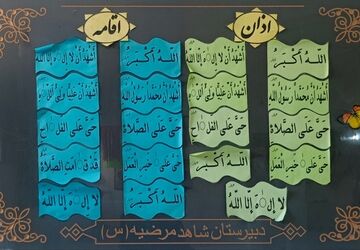 اذان
اَللهُ اَکْبَرُ
اَشْهَدُ اَنْ لا اِلٰهَ اِلَّا اللهُ
اَشْهَدُ اَنَّ مُحَمَّداً رَسُولُ اللهِ
اَشْهَدُ اَنَّ عَلِیّاً وَلِیُّ اللهِ
حَیَّ عَلَی الصَّلاةِ
حَیَّ عَلَی الْفَلاحِ
حَیَّ عَلیٰ خَیْرِ الْعَمَلِ
اَللهُ اَکْبَرُ
لا اِلٰهَ اِلَّا اللهُ
اقامه
اَللهُ اَکْبَرُ
اَشْهَدُ اَنْ لا اِلٰهَ اِلَّا اللهُ
اَشْهَدُ اَنَّ مُحَمَّداً رَسُولُ اللهِ
اَشْهَدُ اَنَّ عَلِیّاً وَلِیُّ اللهِ
حَیَّ عَلَی الصَّلاةِ
حَیَّ عَلَی الْفَلاحِ
حَیَّ عَلیٰ خَیْرِ الْعَمَلِ
قَدْ قامَتِ الصَّلاةُ
اَللهُ اَکْبَرُ
لا اِلٰهَ اِلَّا اللهُ
دبیرستان شاهد مرضیه (س)